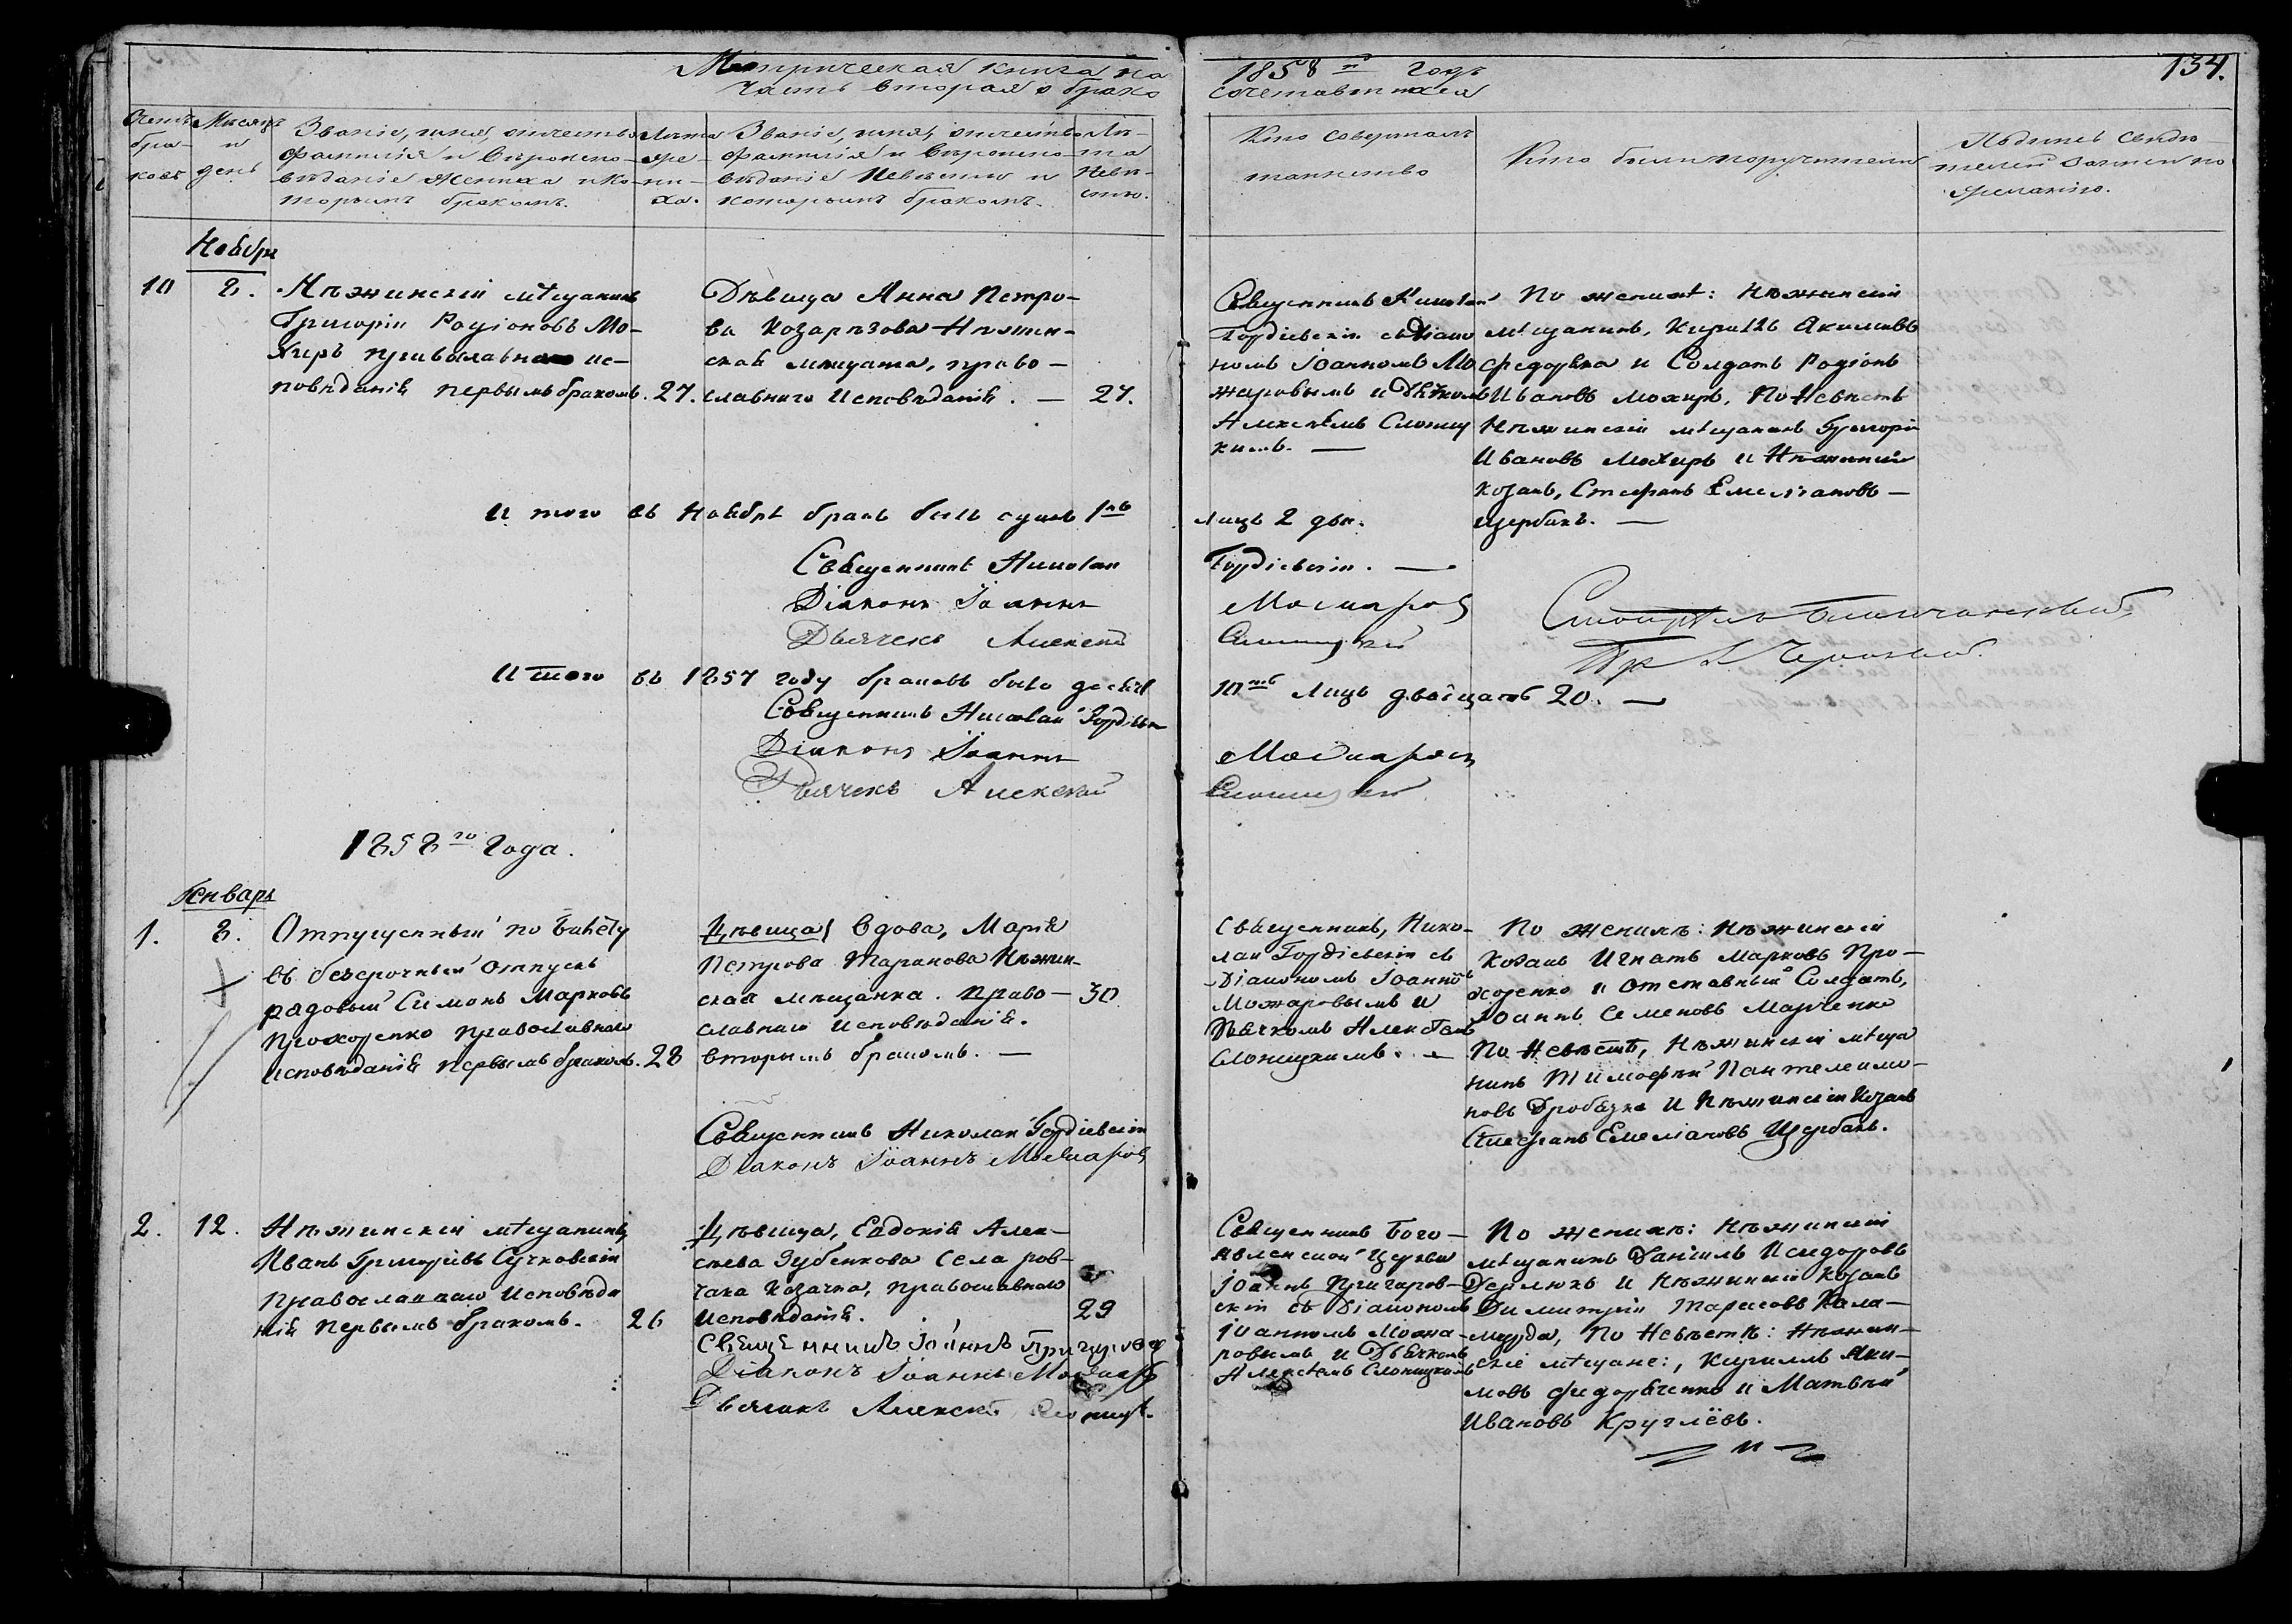 Метрическая книга на
1858й годъ
134.
Часть вторая о брако
сочетавшихся
Счетъ
бра-
ковъ
Мѣсяцъ
и
день
Званіе, имя, отчество
фамилія и вѣроиспо-
вѣданіе Жениха и ко-
торымъ бракомъ.
Лѣта
Же-
ни-
ха.
Званіе, имя, отчество
фамилія и вѣроиспо-
вѣданіе Невѣсты и
которымъ бракомъ.
Лѣ-
та
Невѣ-
сты.
Кто совершалъ
таинство
Кто были поручители
Подпись свидѣ-
телей записи по
желанію.
Ноября
10
8.
Нѣжинскій мѣщанинъ
Григорій Родіоновъ Мо-
хиръ православнаго ис-
повѣданія первымъ бракомъ.
27.
Дѣвица Анна Петро-
ва Козарѣзова Нѣжин-
ская мѣщанка, право-
славнаго Исповѣданія. —
27.
Священникъ Николай
Гордіевскій съ Діако
номъ Іоанномъ Мо
жаровымъ и Дьячкомъ
Алексѣемъ Слониц
кимъ. —
По женихѣ: Нѣжинскій
мѣщанинъ, Кириллъ Акимовъ
Федорѣнко и Солдатъ Родіонъ
Ивановъ Мохиръ. По Невѣстѣ
Нѣжинскій мѣщанинъ Григорій
Ивановъ Мохиръ и Нѣжинскій
Козакъ, Стефанъ Емельяновъ —
Щербакъ. —
И того въ Ноябрѣ бракъ былъ одинъ 1нъ
лицъ 2 два.
Священникъ Николай
Гордіевскій. —
Діаконъ Іоаннъ
Можаровъ
Дьячекъ Алексѣй
Слоницкій
И того въ 1857 году браковъ было десять
10ть лицъ двадцать 20. —
Священникъ Николай Гордіевск
Діаконъ Іоаннъ
Можаровъ
Дьячекъ Алексѣй
Слоницкій
1858го Года.
Генваря
1.
8.
Отпущенный по билету
въ безсрочный отпускъ
рядовый Симонъ Марковъ
Прохоренко православнаго
исповѣданія первымъ бракомъ.
28
Дѣвица Вдова, Марія
Петрова Таранова Нѣжин-
ская мѣщанка. Право-
славнаго исповѣданія.
вторымъ бракомъ. —
30
Священникъ, Нико-
лай Гордіевскій съ
Діакономъ Іоанномъ
Можаровымъ и
Дьячкомъ Алексѣемъ
Слоницкимъ. —
По Женихѣ: Нѣжинскій
Козакъ Игнатъ Марковъ Про-
хоренко и отставный Солдатъ,
Іоаннъ Семеновъ Марченко
По Невѣстѣ, Нѣжинскій мѣща
нинъ Тимофѣй Пантелеимо-
новъ Дробязка и Нѣжинскій Козакъ
Стефанъ Емельяновъ Щербакъ.
Священникъ Николай Гордіевскій
Діаконъ Іоаннъ Можаровъ
2.
12.
Нѣжинскій мѣщанинъ,
Иванъ Григоріевъ Сучковскій
Православнаго Исповѣда
нія первымъ бракомъ.
26
Дѣвица, Евдокія Алек-
сѣева Зубенкова села ров-
чака Козачка, православнаго
Исповѣданія.
29
Священникъ Іоаннъ
Діаконъ Іоаннъ Можар
Дьячекъ Алексѣй Слониц.
Священникъ Бого-
явленской Церкви
Іоаннъ Пригаров-
скій съ Діакономъ
Іоанномъ Можа-
ровымъ и Дьячкомъ
Алексѣемъ Слоницкимъ
По женихѣ: Нѣжинскій
мѣщанинъ Даніилъ Исидоровъ
Дерлюкъ и Нѣжинскій Козакъ
Димитрій Тарасовъ Кала-
муйда, По Невѣстѣ: Нѣжин-
скіе мѣщане:, Кириллъ Яки-
мовъ Федорѣченко и Матвѣй
Ивановъ Круглёвъ.